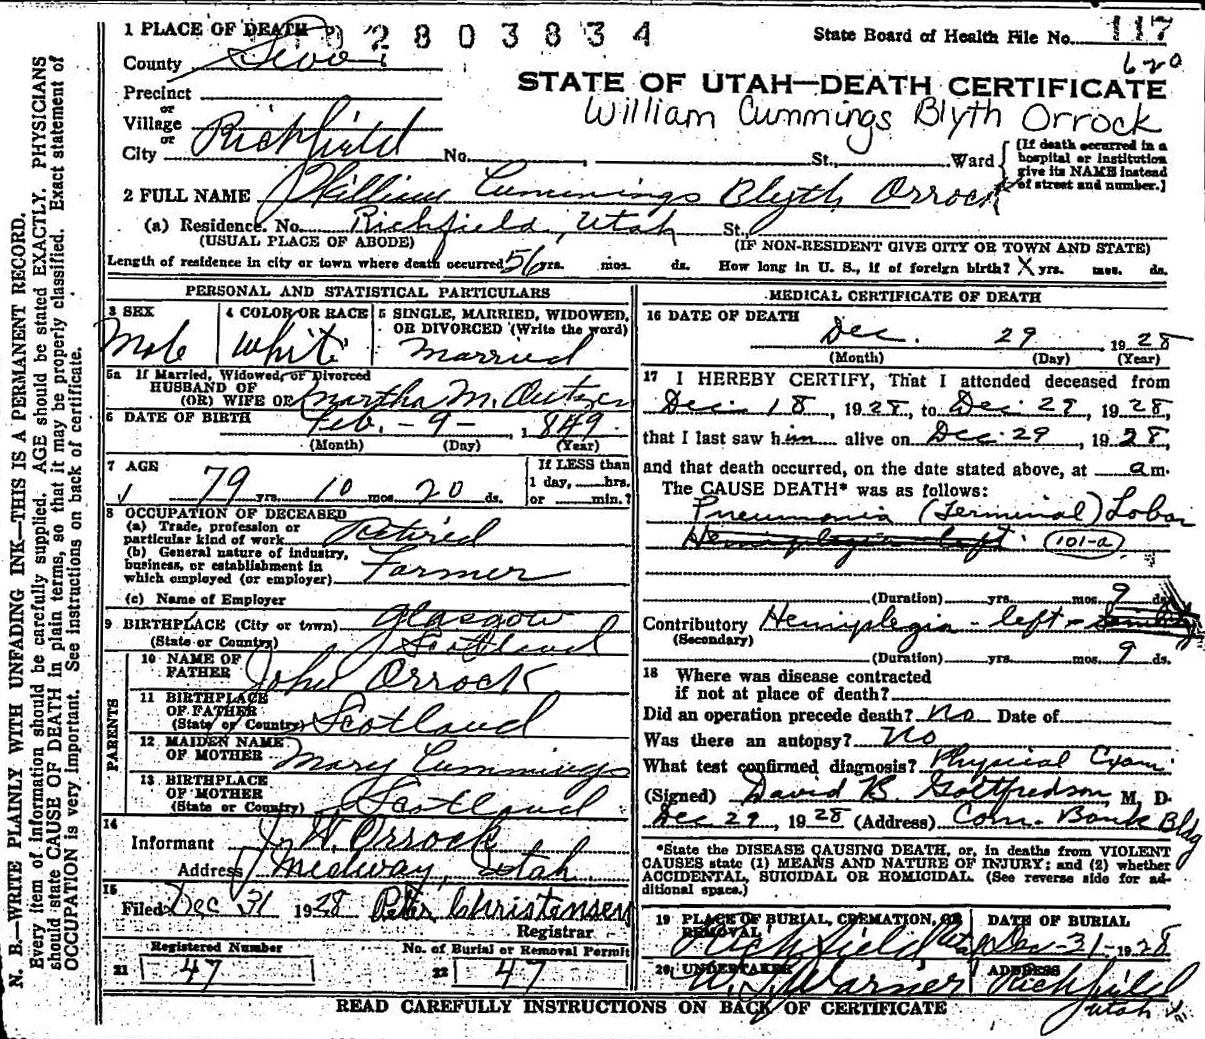 1 PLACE OF DEATH 02803834 State Board of Health File No. 117
County Sevier 620
STATE OF UTAH—DEATH CERTIFICATE
Precinct
or
Village
William Cummings Blyth Orrock
or
City Richfield No. , St., Ward
[If death occurred in a hospital or institution give its NAME instead of street and number.]
2 FULL NAME William Cummings Blyth Orrock
(a) Residence. No. Richfield, Utah St.,
(USUAL PLACE OF ABODE) (IF NON-RESIDENT GIVE CITY OR TOWN AND STATE)
Length of residence in city or town where death occurred 56 yrs. mos. ds. How long in U. S., if of foreign birth? X yrs. mos. ds.
PERSONAL AND STATISTICAL PARTICULARS
3 SEX 4 COLOR OR RACE 5 SINGLE, MARRIED, WIDOWED,
OR DIVORCED (Write the word)
Male White Married
5a If Married, Widowed, or Divorced
HUSBAND OF
(OR) WIFE OF Martha M. Outzen
6 DATE OF BIRTH Feb. - 9 - , 1849.
(Month) (Day) (Year)
7 AGE If LESS than
1 day, hrs.
79 yrs. 10 mos. 20 ds. or min.?
8 OCCUPATION OF DECEASED
(a) Trade, profession or
particular kind of work Retired
(b) General nature of industry,
business, or establishment in
which employed (or employer) Farmer
(c) Name of Employer
9 BIRTHPLACE (City or town) Glasgow
(State or Country) Scotland
PARENTS
10 NAME OF
FATHER John Orrock
11 BIRTHPLACE
OF FATHER
(State or Country) Scotland
12 MAIDEN NAME
OF MOTHER Mary Cummings
13 BIRTHPLACE
OF MOTHER
(State or Country) Scotland
14
Informant J. W. Orrock
Address Midway, Utah
15
Filed Dec 31 1928 Peter Christensen
Registrar
Registered Number No. of Burial or Removal Permit
21 47 22 47
MEDICAL CERTIFICATE OF DEATH
16 DATE OF DEATH
Dec. 29 1928
(Month) (Day) (Year)
17 I HEREBY CERTIFY, That I attended deceased from
Dec. 18, 1928, to Dec. 29, 1928,
that I last saw him alive on Dec. 29, 1928,
and that death occurred, on the date stated above, at a m.
The CAUSE DEATH* was as follows:
Pneumonia (Terminal) Lobar
Hemiplegia left. (101-a)
(Duration) yrs. mos. 9 ds.
Contributory Hemiplegia - left -
(Secondary)
(Duration) yrs. mos. 9 ds.
18 Where was disease contracted
if not at place of death?
Did an operation precede death? No Date of
Was there an autopsy? No
What test confirmed diagnosis? Physical Exam.
(Signed) David B. Gottfredson M. D.
Dec 29, 1928 (Address) Com. Bank Bldg
*State the DISEASE CAUSING DEATH, or, in deaths from VIOLENT
CAUSES state (1) MEANS AND NATURE OF INJURY; and (2) whether
ACCIDENTAL, SUICIDAL OR HOMICIDAL. (See reverse side for ad-
ditional space.)
19 PLACE OF BURIAL, CREMATION, OR
REMOVAL DATE OF BURIAL
Richfield Utah Dec-31-1928
20 UNDERTAKER ADDRESS
Warner Richfield
Utah
READ CAREFULLY INSTRUCTIONS ON BACK OF CERTIFICATE
N. B.—WRITE PLAINLY WITH UNFADING INK—THIS IS A PERMANENT RECORD.
Every item of information should be carefully supplied. AGE should be stated EXACTLY. PHYSICIANS
should state CAUSE OF DEATH in plain terms, so that it may be properly classified. Exact statement of
OCCUPATION is very important. See instructions on back of certificate.